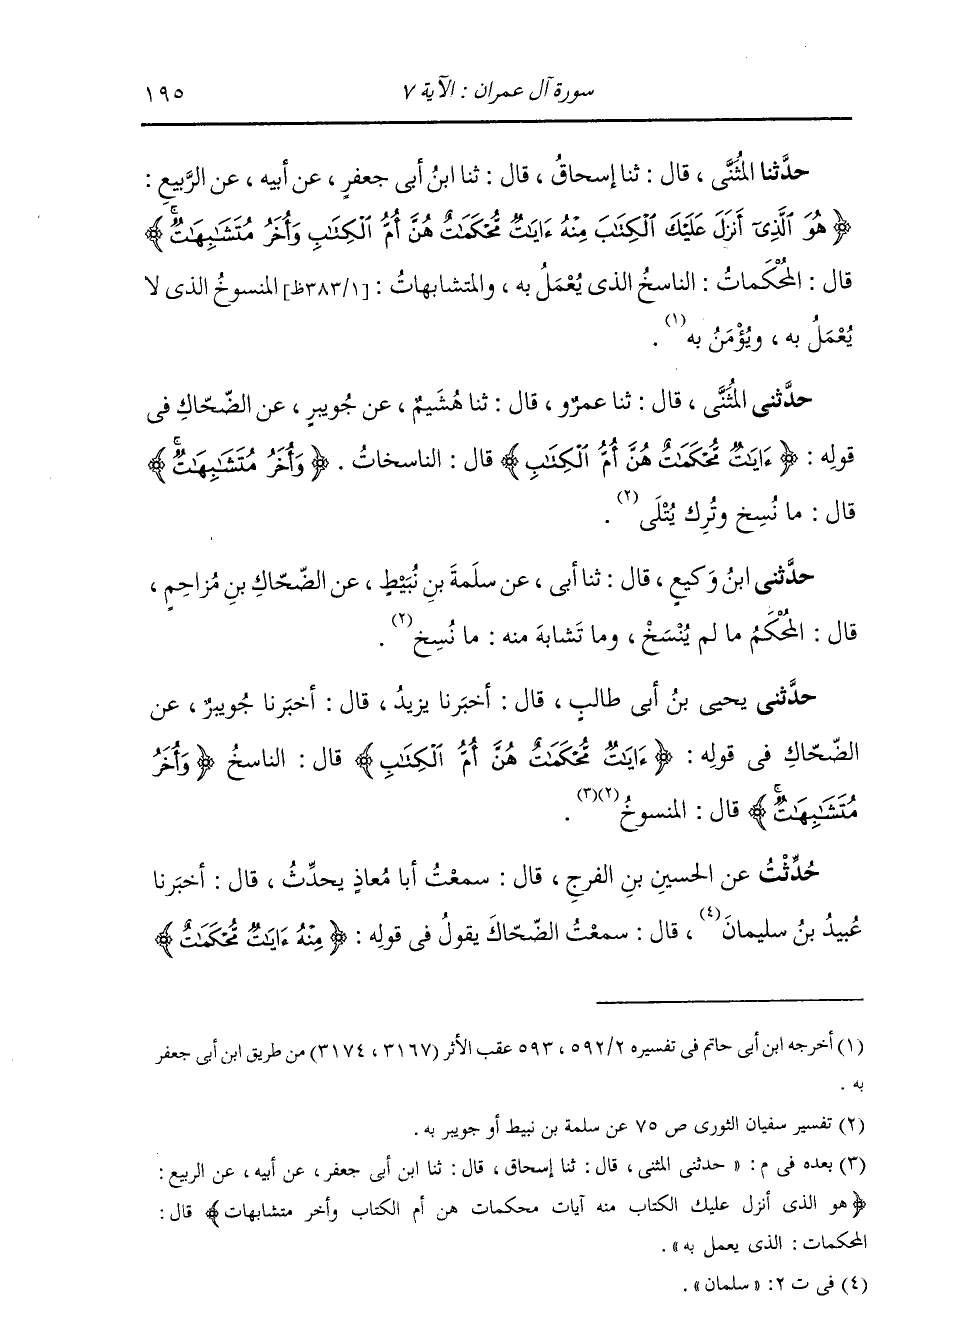 سورة آل عمران : الآية ٧ ١٩٥
حدَّثنا المُثَنَّى ، قال : ثنا إسحاقُ ، قال : ثنا ابنُ أبى جعفرٍ ، عن أبيه ، عن الرَّبيعِ :
﴿ هُوَ ٱلَّذِىٓ أَنزَلَ عَلَيْكَ ٱلْكِتَٰبَ مِنْهُ ءَايَٰتٌ مُّحْكَمَٰتٌ هُنَّ أُمُّ ٱلْكِتَٰبِ وَأُخَرُ مُتَشَٰبِهَٰتٌۚ ﴾
قال : المُحْكَماتُ : الناسخُ الذى يُعْمَلُ به ، والمتشابهاتُ : [٣٨٣/١ظ] المنسوخُ الذى لا
يُعْمَلُ به ، ويُؤْمَنُ به(١) .
حدَّثنى المُثَنَّى ، قال : ثنا عمرٌو ، قال : ثنا هُشَيمٌ ، عن جُويبرٍ ، عن الضّحّاكِ فى
قولِه : ﴿ ءَايَٰتٌ مُّحْكَمَٰتٌ هُنَّ أُمُّ ٱلْكِتَٰبِ ﴾ قال : الناسخاتُ . ﴿ وَأُخَرُ مُتَشَٰبِهَٰتٌۚ ﴾
قال : ما نُسِخ وتُرِك يُتْلَى(٢) .
حدَّثنى ابنُ وَكيعٍ ، قال : ثنا أبى ، عن سلَمةَ بنِ نُبَيْطٍ ، عن الضّحّاكِ بنِ مُزاحِمٍ ،
قال : المُحْكَمُ ما لم يُنْسَخْ ، وما تَشابهَ منه : ما نُسِخ(٢) .
حدَّثنى يحيى بنُ أبى طالبٍ ، قال : أخبَرنا يزيدُ ، قال : أخبَرنا جُويبرٌ ، عن
الضّحّاكِ فى قولِه : ﴿ ءَايَٰتٌ مُّحْكَمَٰتٌ هُنَّ أُمُّ ٱلْكِتَٰبِ ﴾ قال : الناسخُ ﴿ وَأُخَرُ
مُتَشَٰبِهَٰتٌۚ ﴾ قال : المنسوخُ(٢)(٣) .
حُدِّثْتُ عن الحسينِ بنِ الفرجِ ، قال : سمعْتُ أبا مُعاذٍ يحدِّثُ ، قال : أخبَرنا
عُبيدُ بنُ سليمانَ(٤) ، قال : سمعْتُ الضّحّاكَ يقولُ فى قولِه : ﴿ مِنْهُ ءَايَٰتٌ مُّحْكَمَٰتٌ ﴾
(١) أخرجه ابن أبى حاتم فى تفسيره ٥٩٢/٢ ، ٥٩٣ عقب الأثر (٣١٦٧ ، ٣١٧٤) من طريق ابن أبى جعفر
به .
(٢) تفسير سفيان الثورى ص ٧٥ عن سلمة بن نبيط أو جويبر به .
(٣) بعده فى م : « حدثنى المثنى ، قال : ثنا إسحاق ، قال : ثنا ابن أبى جعفر ، عن أبيه ، عن الربيع :
﴿ هو الذى أنزل عليك الكتاب منه آيات محكمات هن أم الكتاب وأخر متشابهات ﴾ قال :
المحكمات : الذى يعمل به » .
(٤) فى ت ٢: « سلمان » .